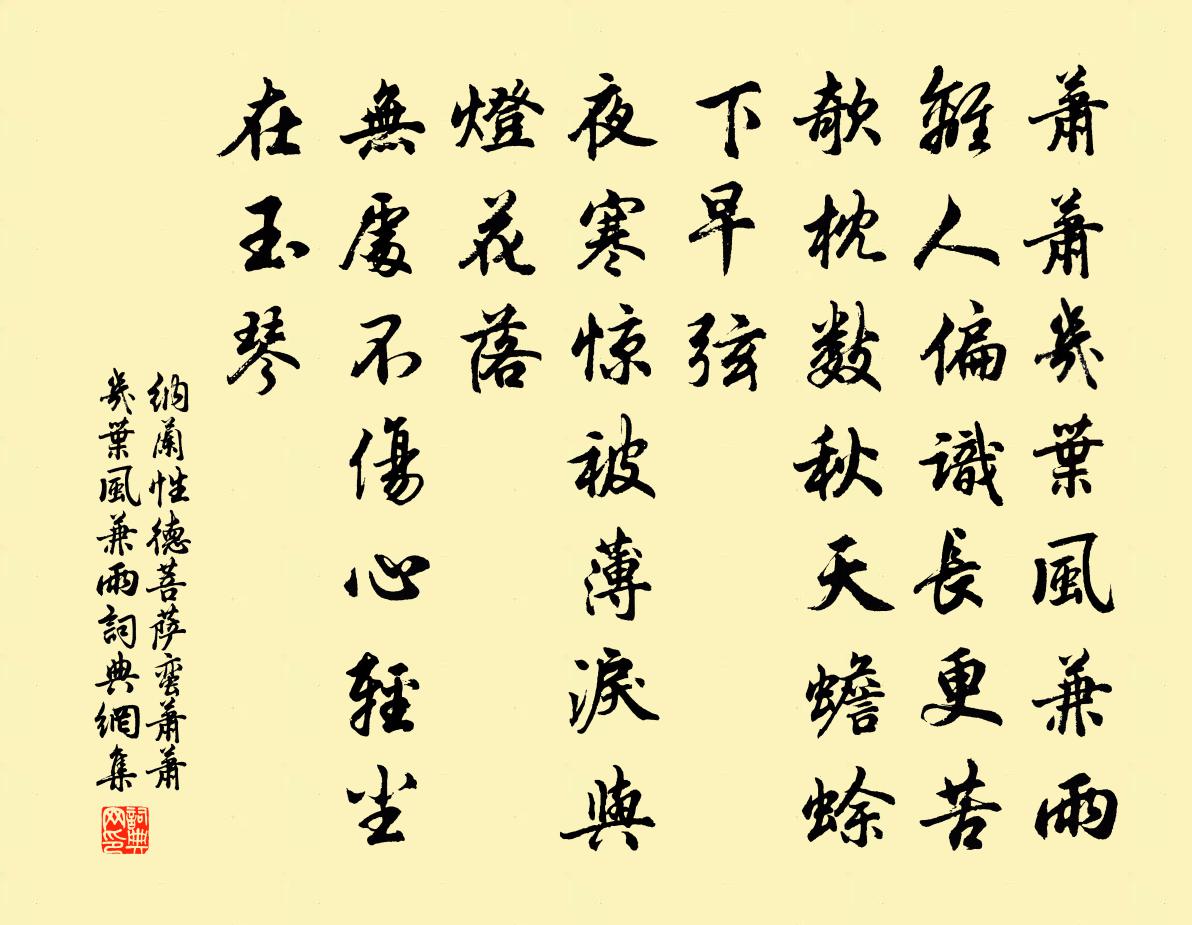 蕭蕭幾葉風兼雨
離人偏識長更苦
欹枕數秋天蟾蜍
下早弦
夜寒惊被薄淚與
燈花落
無處不傷心輕尘
在玉琴
納蘭性德菩薩蛮蕭蕭
幾葉風兼雨詞典網集
詞典
网印